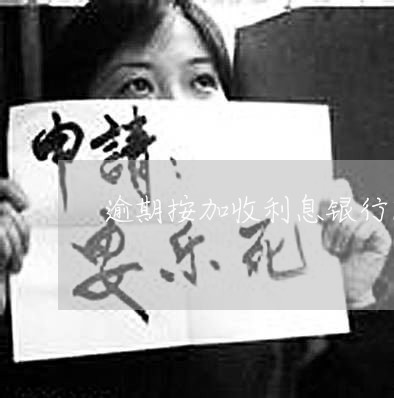 申請：
逾期按加收利息银行
安乐死